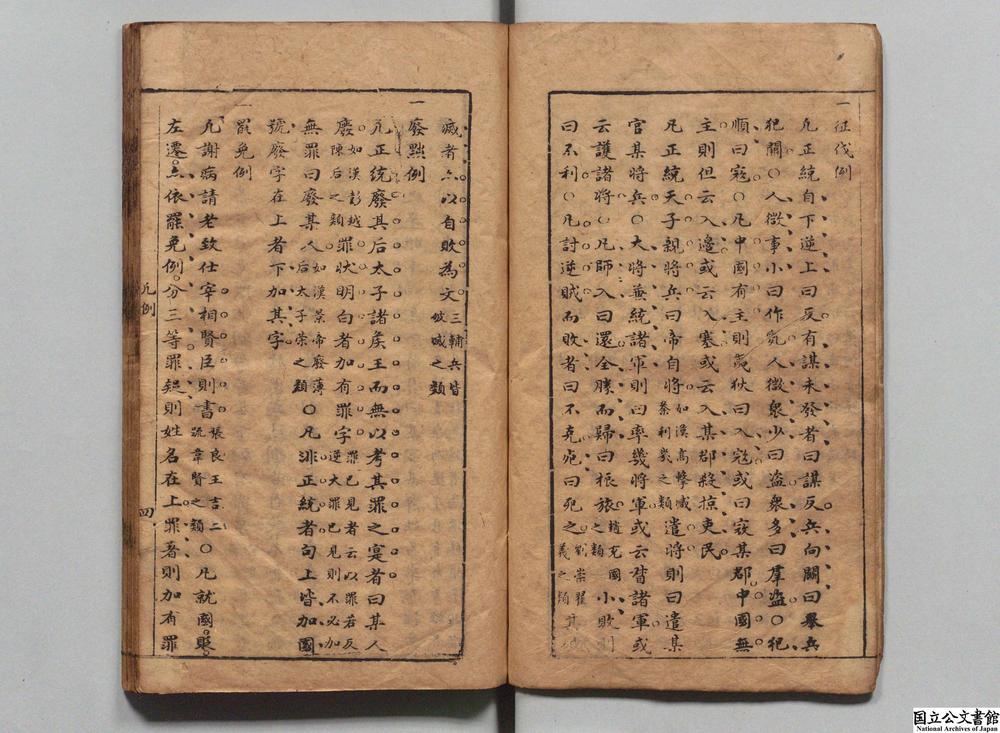 一征伐例
凡正統自下逆上曰反有謀未發者曰謀反兵向闕曰舉兵
犯闕○人微事小曰作亂人微衆少曰盗衆多曰羣盗○犯
順曰寇○凡中國有主則夷狄曰入寇或曰寇某郡中國無
主則但云入邊或云入塞或云入某郡殺掠吏民
凡正統天子親將兵曰帝自將如漢高擊臧荼利㡬之類遣將則曰遣某
官某將兵○大將兼統諸軍則曰率幾將軍或云督諸軍或
云護諸將○凡師入曰還全勝而歸曰振旅趙充國之類小敗則
曰不利○凡討逆賊而敗者曰不克死曰死之劉崇翟義之類其
滅者亦以自敗為文三輔兵皆破滅之類
一廢黜例
凡正統廢其后太子諸矦王而無以考其罪之寔者曰某人
廢如漢彭越陳后之類罪状明白者加有罪字罪已見者云以罪若反逆大罪已見則不必加
無罪曰廢某人如漢景帝廢薄后太子榮之類○凡非正統者句上皆加國
號廢字在上者下加其字
一罷免例
凢謝病請老致仕宰相賢臣則書張良王吉二疏韋賢之類○凡就國貶
左遷亦依罷免例分三等罪疑則姓名在上罪著則加有罪
凡例
四
国立公文書館
National Archives of Japan